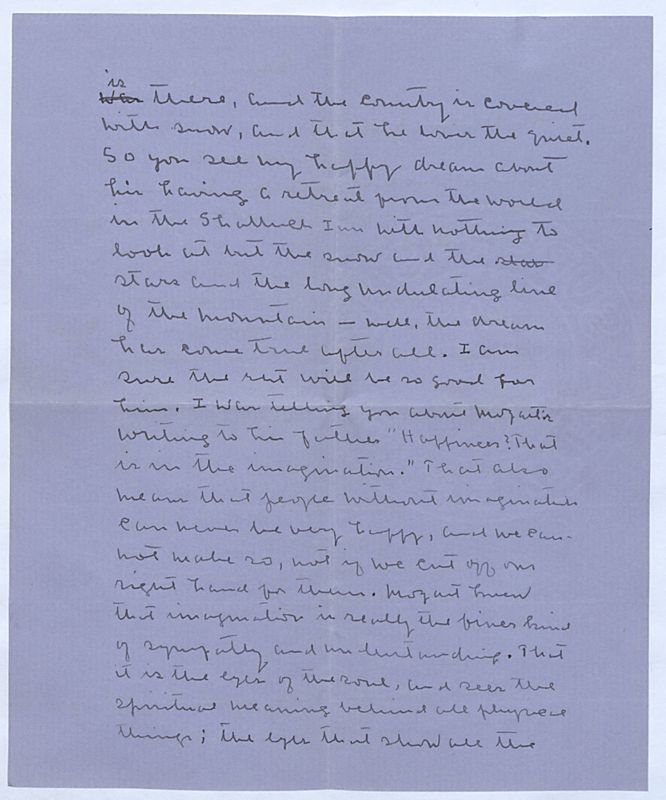 is
was there, and the country is covered
with snow, and that he loves the quiet.
So you see my happy dream about
his having a retreat from the world
in the Shattuck Inn with nothing to
look at but the snow and the star
stars and the long undulating line
of the mountain — well, the dream
has come true after all. I am
sure the rest will be so good for
him. I was telling you about Mozart's
writing to his father "Happiness? That
is in the imagination." That also
means that people without imagination
can never be very happy, and we can-
not make so, not if we cut off our
right hand for them. Mozart knew
that imagination is really the finer kind
of sympathy and understanding. That
it is the eyes of the soul, and sees the
spiritual meaning behind all physical
things; the eyes that show all the